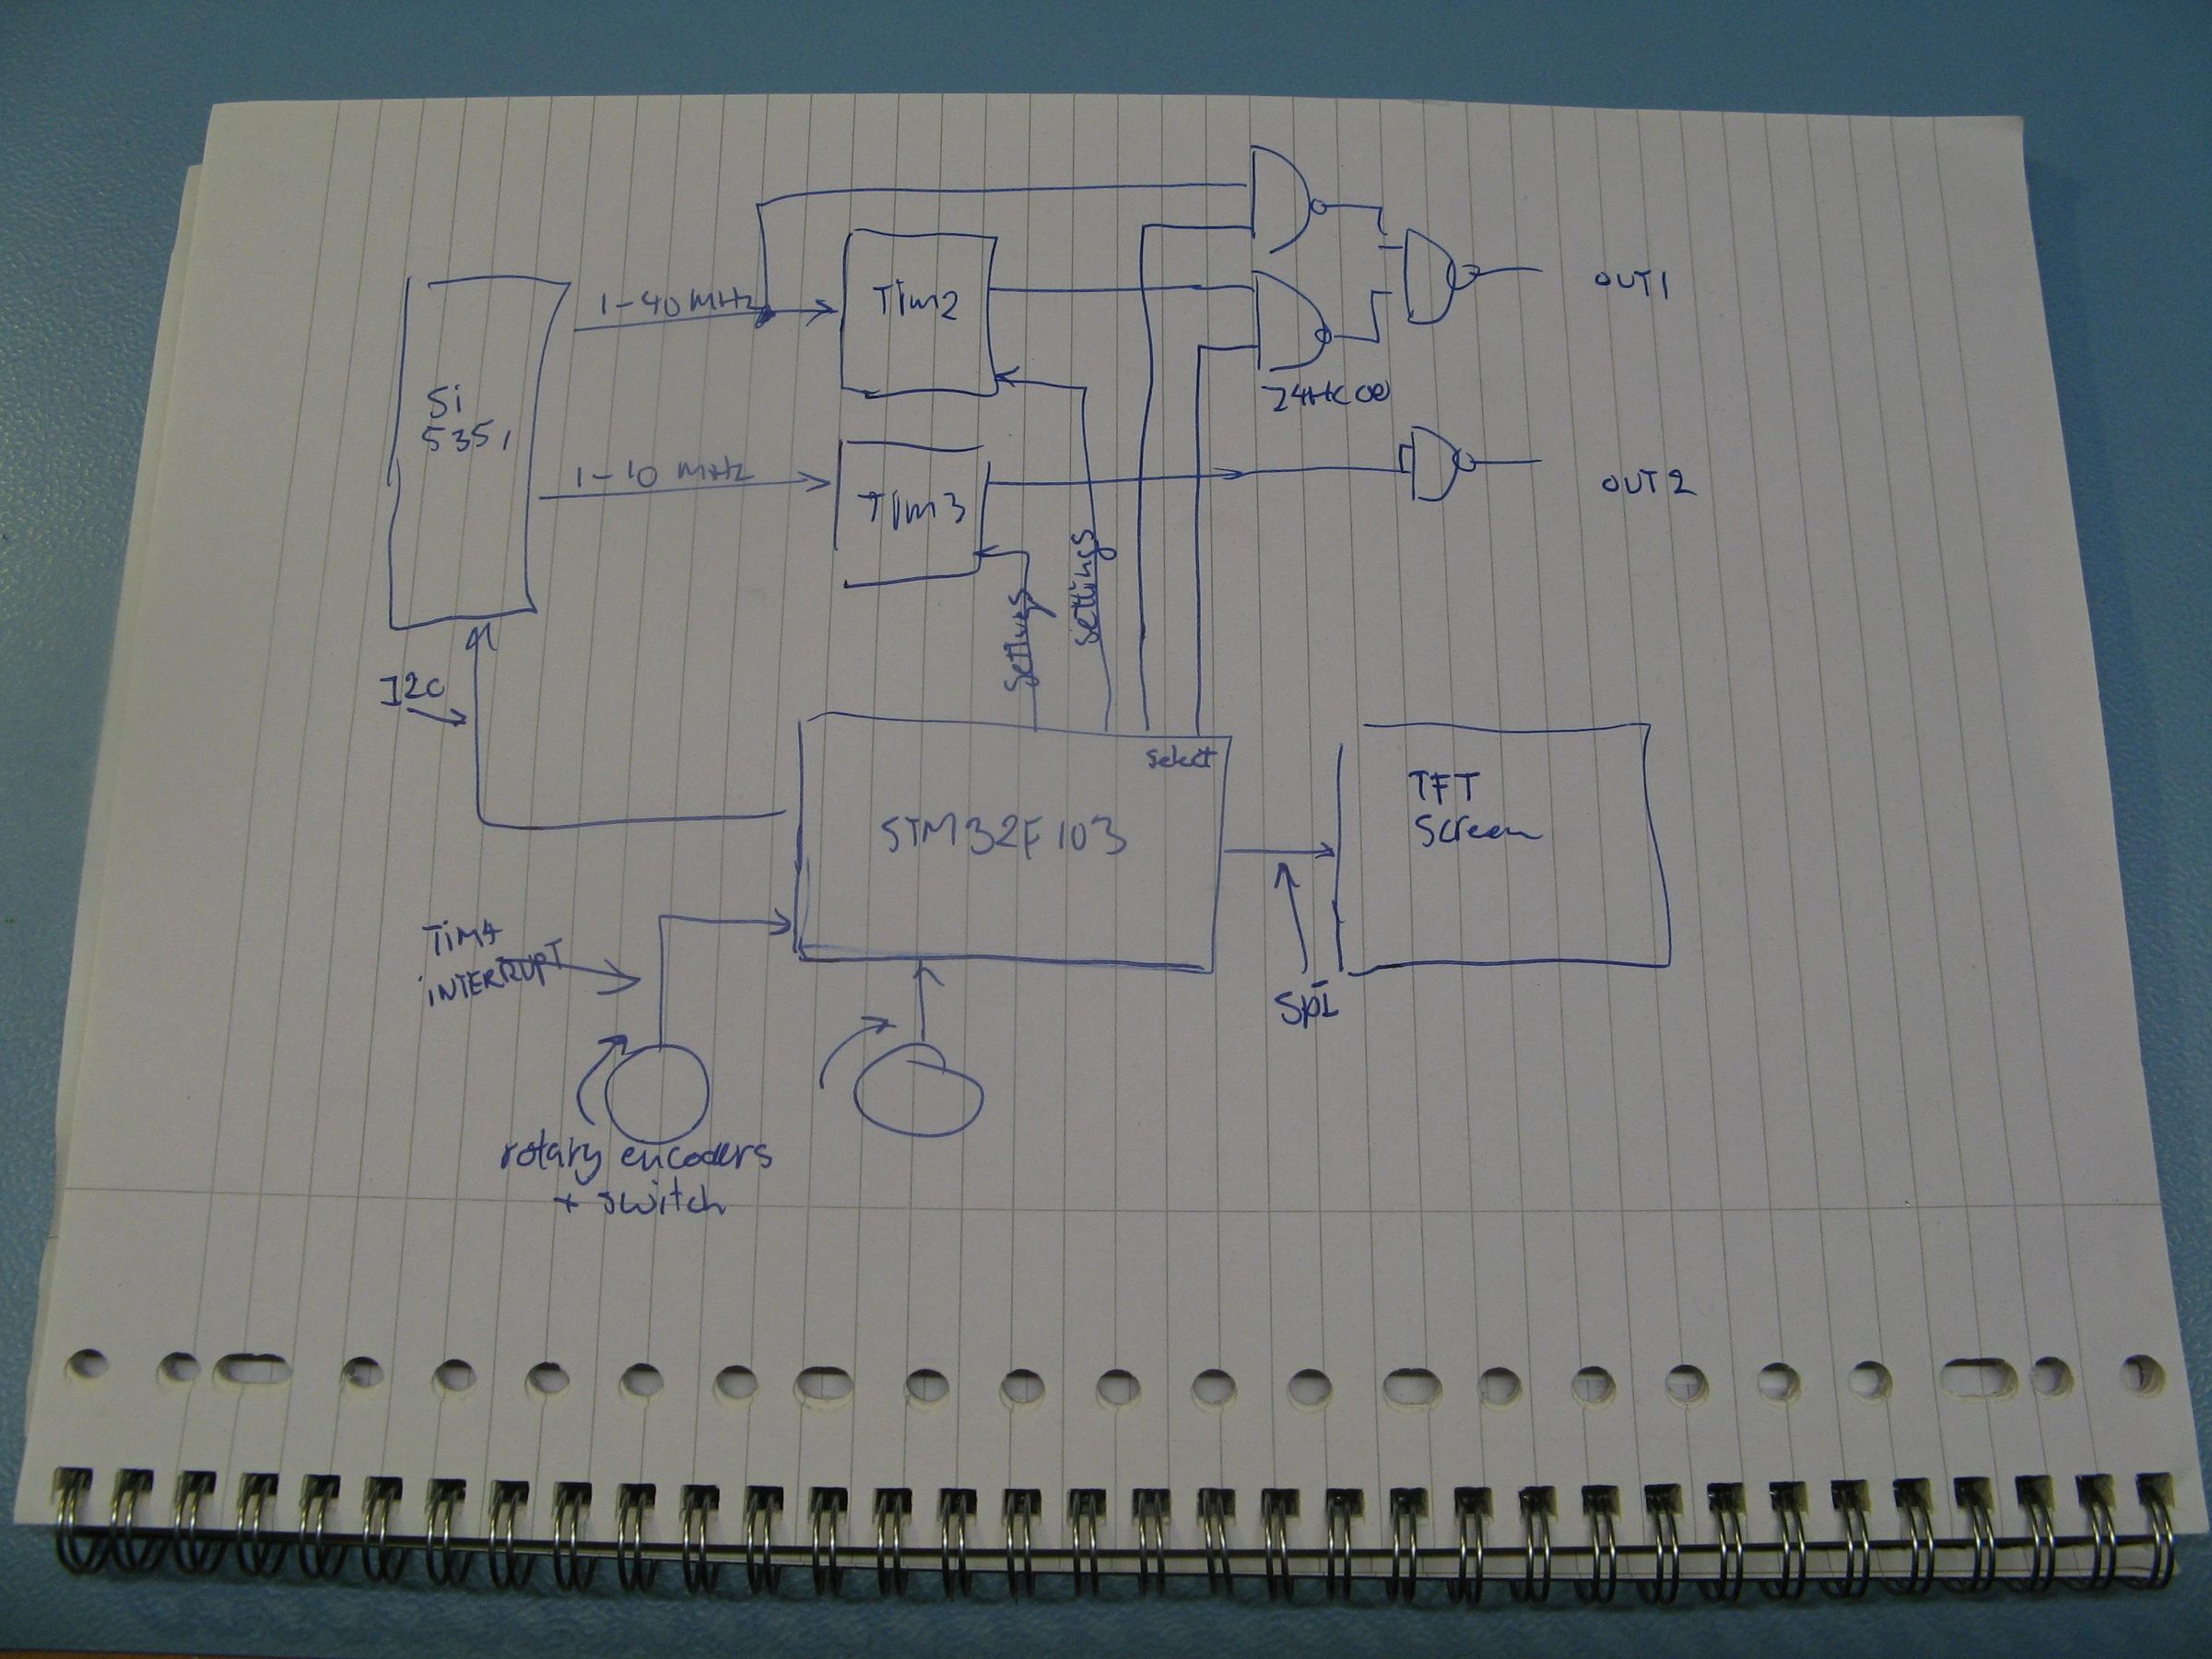 1-40 MHz
Tim2
OUT1
Si
5351
74HC00
1-10 MHz
Tim3
OUT2
settings
settings
I2C
select
STM32F103
TFT
Screen
TiM4
iNTERRUPT
SPI
rotary encoders
+ switch